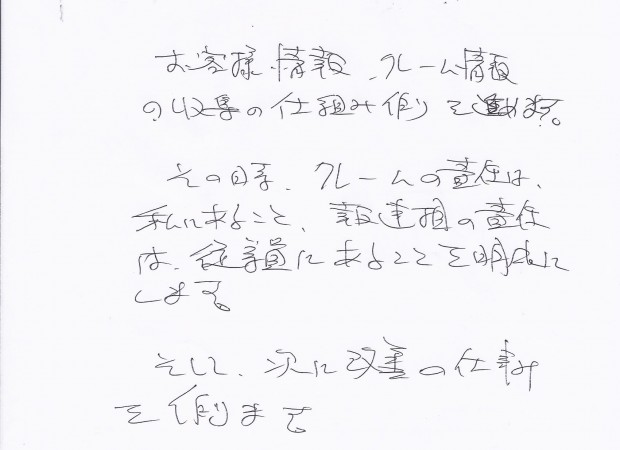 お客様情報、クレーム情報
の収集の仕組み作りを進めます。
その時、クレームの責任は、
私にあること、報連相の責任
は、従業員にあることを明確に
します。
そして、次に改善の仕組み
を作ります